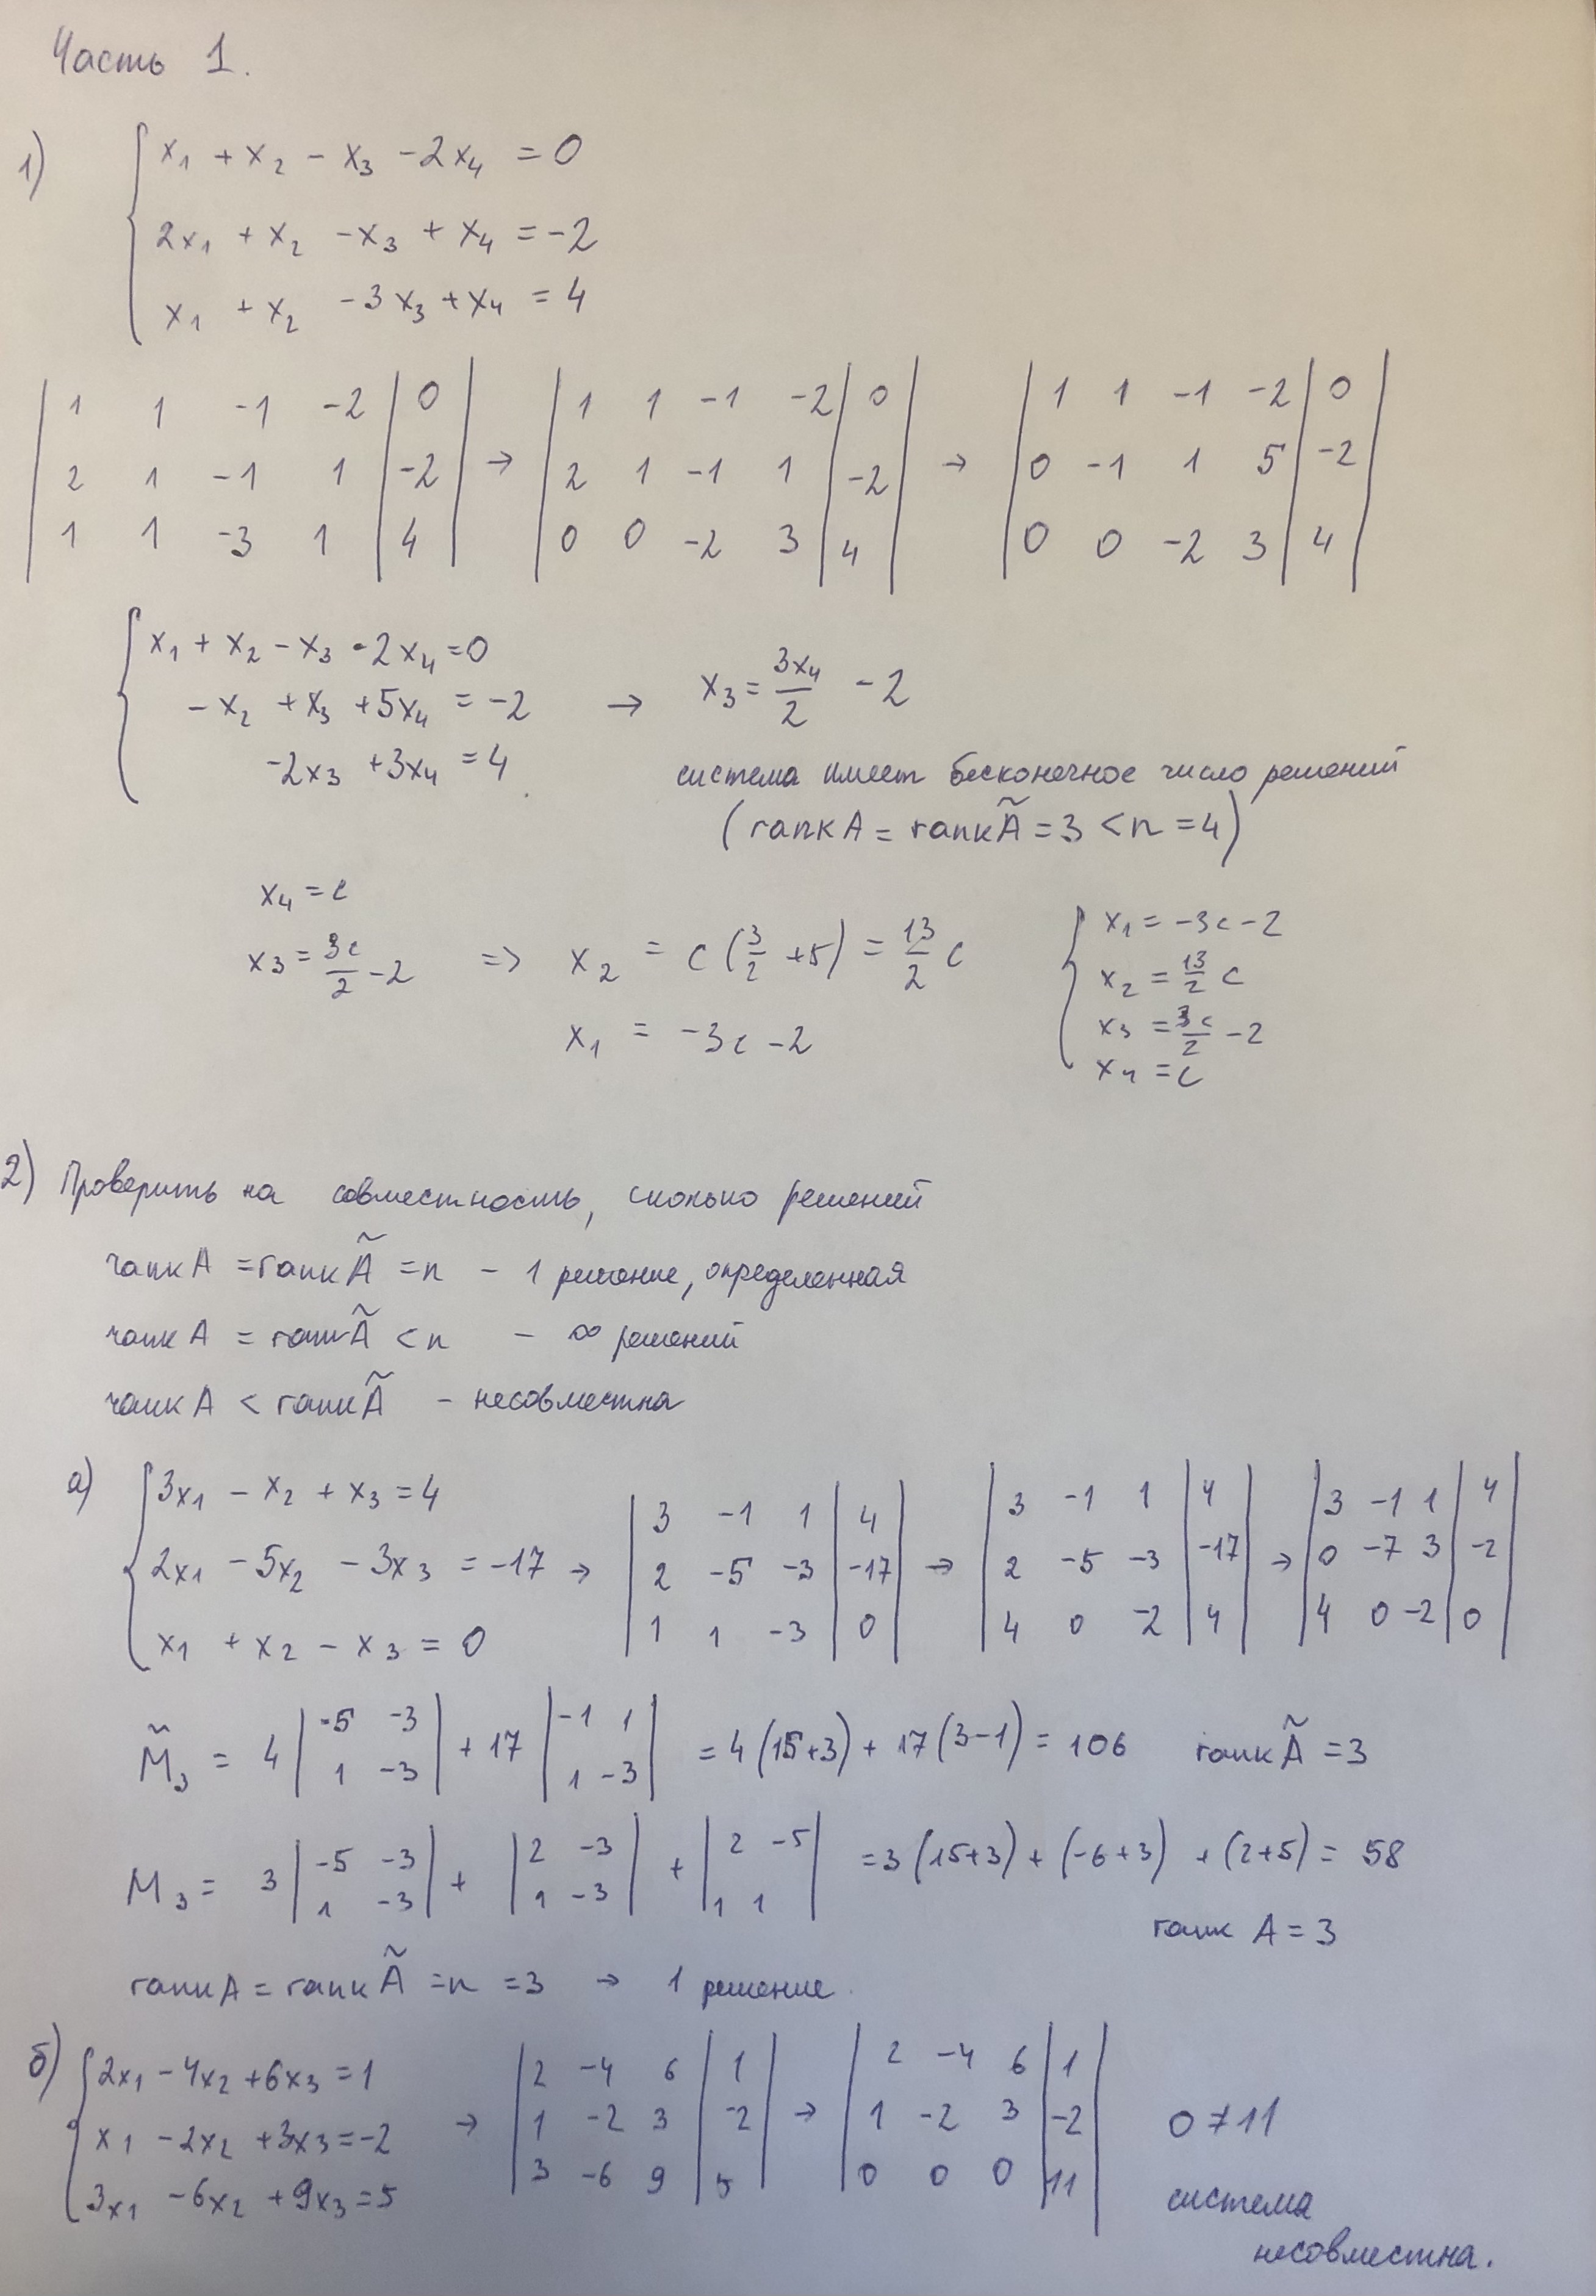 Часть 1.
1) { x₁ + x₂ - x₃ - 2x₄ = 0
2x₁ + x₂ - x₃ + x₄ = -2
x₁ + x₂ - 3x₃ + x₄ = 4
| 1 1 -1 -2 | 0 | → | 1 1 -1 -2 | 0 | → | 1 1 -1 -2 | 0 |
| 2 1 -1 1 | -2 | | 2 1 -1 1 | -2 | | 0 -1 1 5 | -2 |
| 1 1 -3 1 | 4 | | 0 0 -2 3 | 4 | | 0 0 -2 3 | 4 |
{ x₁ + x₂ - x₃ - 2x₄ = 0
- x₂ + x₃ + 5x₄ = -2 → x₃ = 3x₄/2 - 2
-2x₃ + 3x₄ = 4
система имеет бесконечное число решений
(rank A = rank Ã = 3 < n = 4)
x₄ = c
x₃ = 3c/2 - 2 => x₂ = c (3/2 + 5) = 13/2 c
x₁ = -3c - 2
{ x₁ = -3c - 2
x₂ = 13/2 c
x₃ = 3c/2 - 2
x₄ = c
2) Проверить на совместность, сколько решений
rank A = rank Ã = n - 1 решение, определенная
rank A = rank Ã < n - ∞ решений
rank A < rank Ã - несовместна
а) { 3x₁ - x₂ + x₃ = 4
2x₁ - 5x₂ - 3x₃ = -17 →
x₁ + x₂ - x₃ = 0
| 3 -1 1 | 4 | → | 3 -1 1 | 4 | → | 3 -1 1 | 4 |
| 2 -5 -3 | -17 | | 2 -5 -3 | -17 | | 0 -7 3 | -2 |
| 1 1 -3 | 0 | | 4 0 -2 | 4 | | 4 0 -2 | 0 |
M̃₃ = 4 | -5 -3 ; 1 -3 | + 17 | -1 1 ; 1 -3 | = 4 (15+3) + 17 (3-1) = 106 rank Ã = 3
M₃ = 3 | -5 -3 ; 1 -3 | + | 2 -3 ; 1 -3 | + | 2 -5 ; 1 1 | = 3 (15+3) + (-6+3) + (2+5) = 58
rank A = 3
rank A = rank Ã = n = 3 → 1 решение.
б) { 2x₁ - 4x₂ + 6x₃ = 1
x₁ - 2x₂ + 3x₃ = -2 →
3x₁ - 6x₂ + 9x₃ = 5
| 2 -4 6 | 1 | → | 2 -4 6 | 1 |
| 1 -2 3 | -2 | | 1 -2 3 | -2 | 0 ≠ 11
| 3 -6 9 | 5 | | 0 0 0 | 11 |
система
несовместна.